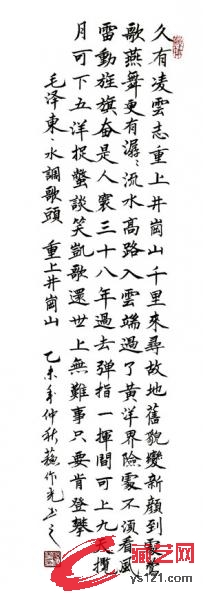 久有凌雲志重上井崗山千里來尋故地舊貌變新顏到處鶯
歌燕舞更有潺〻流水高路入雲端過了黃洋界險處不須看風
雷動旌旗奮是人寰三十八年過去弹指一揮間可上九天攬
月可下五洋捉鱉談笑凱歌還世上無難事只要肯登攀
毛泽東 水調歌頭 重上井崗山 乙未年仲秋蘇作光书之
藏艺网
ys121.com